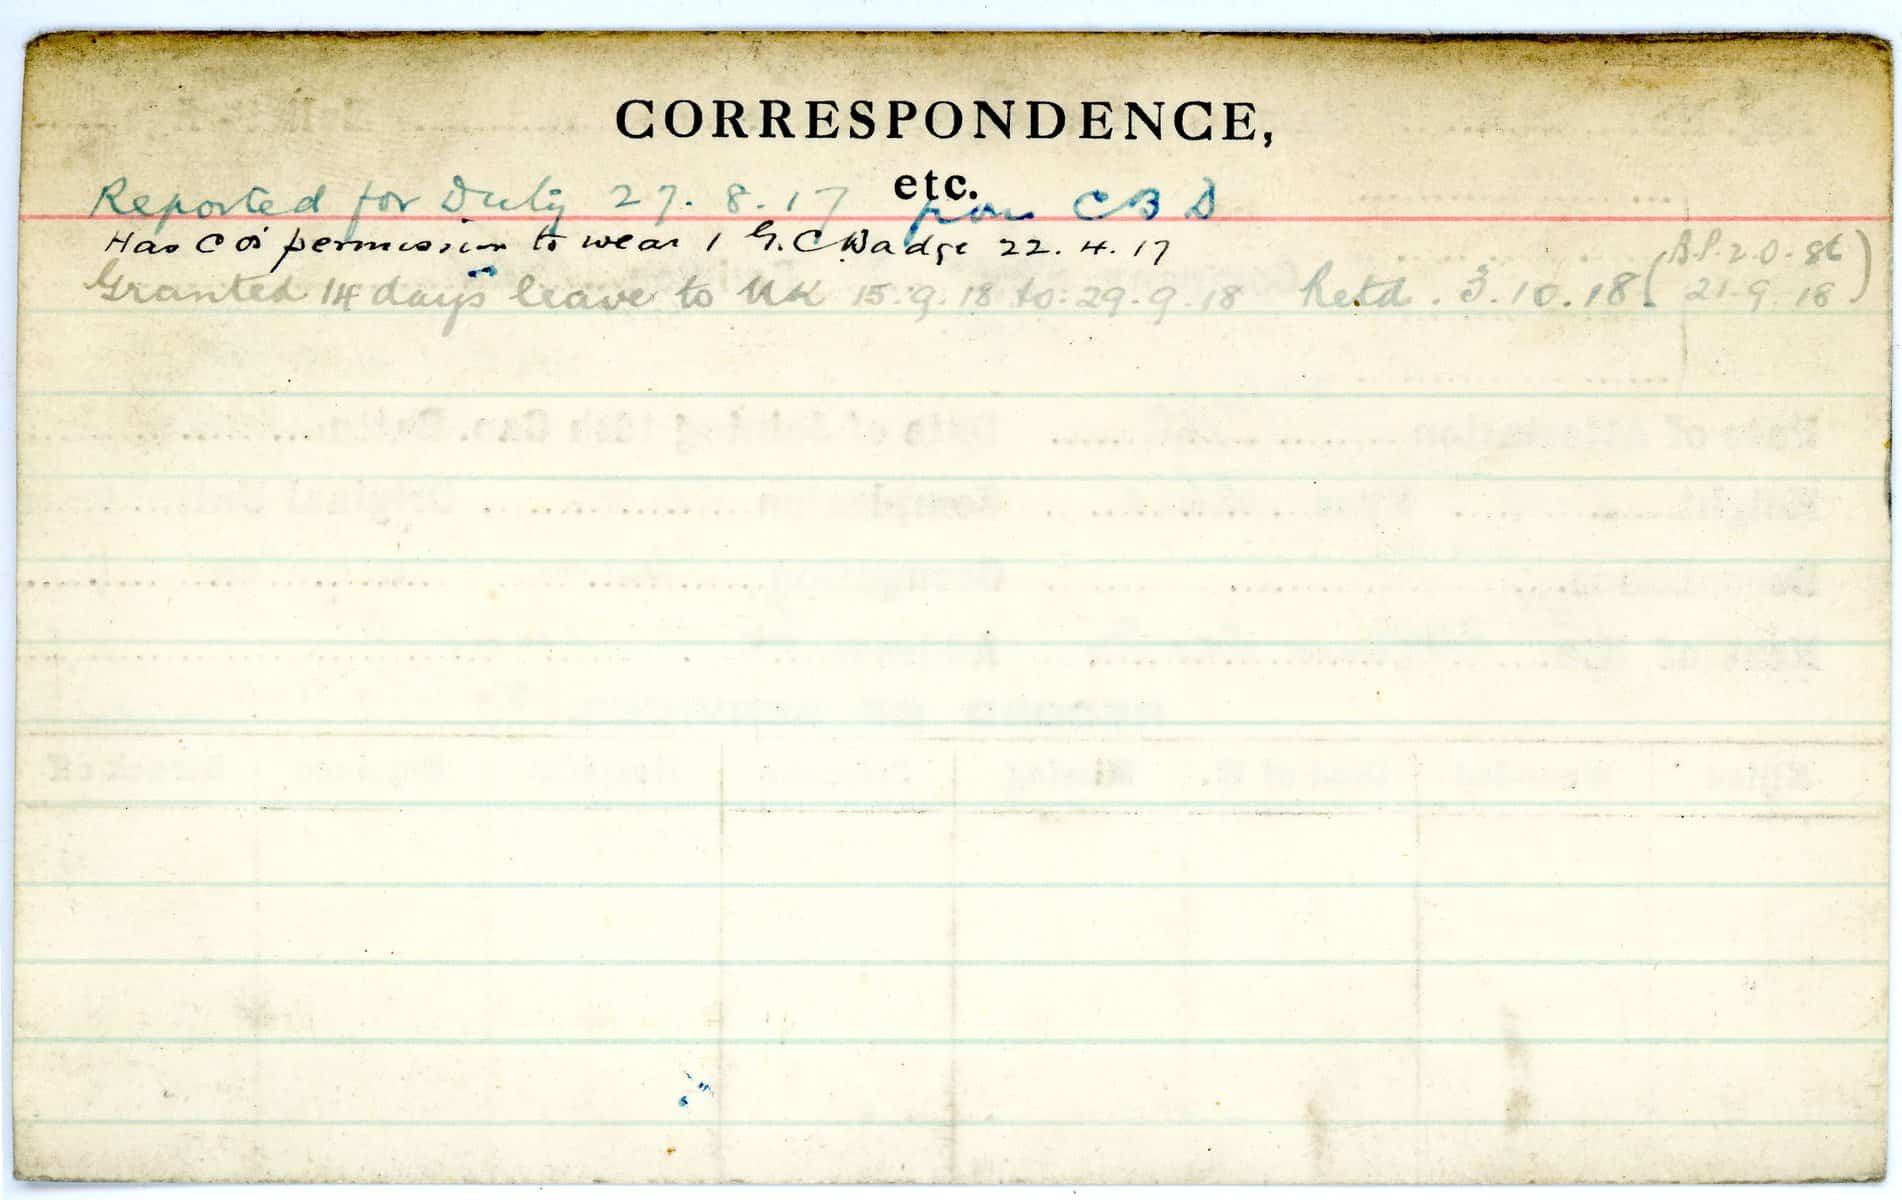 CORRESPONDENCE,
etc.
Reported for Duty 27.8.17 from C B D
Has C O's permission to wear 1 G.C Badge 22.4.17
Granted 14 days leave to UK 15.9.18 to: 29.9.18 Retd. 3.10.18 (B.P.2.O. 86
21-9-18)